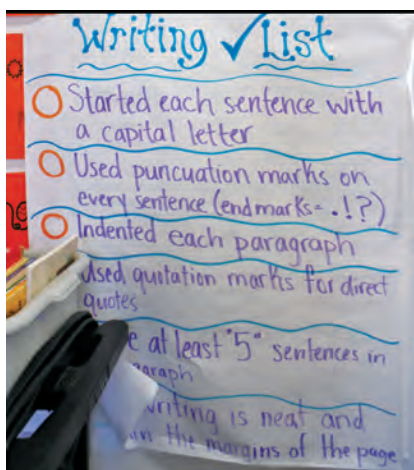 Writing ✓List
Started each sentence with
a capital letter
Used puncuation marks on
every sentence (endmarks= . ! ?)
Indented each paragraph
Used quotation marks for direct
quotes
e at least "5" sentences in
aragraph
writing is neat and
in the margins of the page